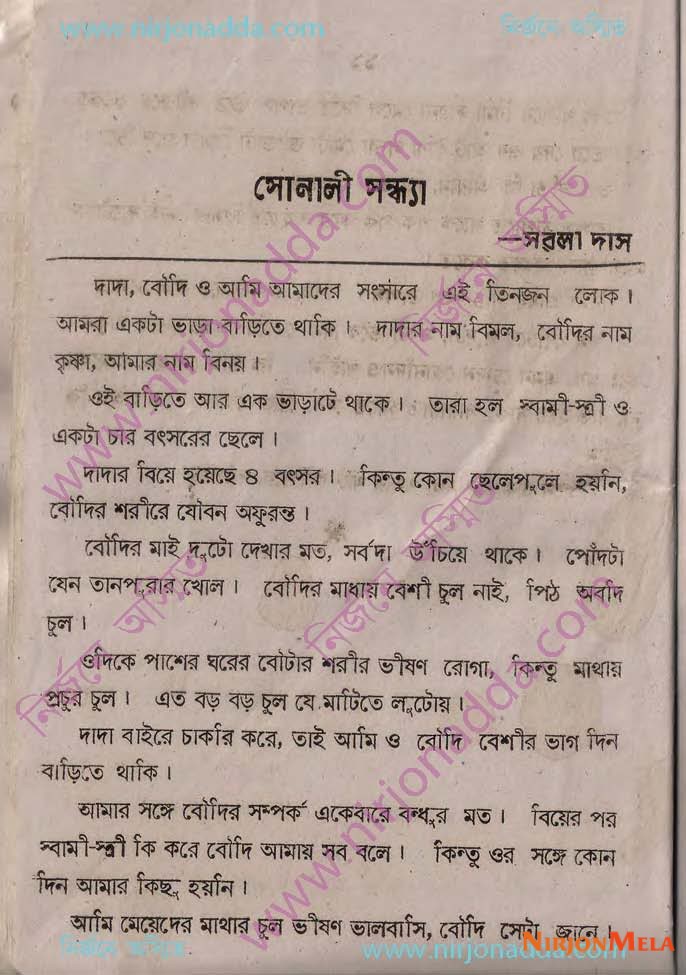 www.nirjonadda.com নির্জনে অস্মিত
সোনালী সন্ধ্যা
—সরলা দাস
দাদা, বৌদি ও আমি আমাদের সংসারে এই তিনজন লোক।
আমরা একটা ভাড়া বাড়িতে থাকি। দাদার নাম বিমল, বৌদির নাম
কৃষ্ণা, আমার নাম বিনয়।
ওই বাড়িতে আর এক ভাড়াটে থাকে। তারা হল স্বামী-স্ত্রী ও
একটা চার বৎসরের ছেলে।
দাদার বিয়ে হয়েছে ৪ বৎসর। কিন্তু কোন ছেলেপুলে হয়নি,
বৌদির শরীরে যৌবন অফুরন্ত।
বৌদির মাই দুটো দেখার মত, সর্বদা উঁচিয়ে থাকে। পোঁদটা
যেন তানপুরার খোল। বৌদির মাথায় বেশী চুল নাই, পিঠ অবদি
চুল।
ওদিকে পাশের ঘরের বৌটার শরীর ভীষণ রোগা, কিন্তু মাথায়
প্রচুর চুল। এত বড় বড় চুল যে মাটিতে লুটোয়।
দাদা বাইরে চাকরি করে, তাই আমি ও বৌদি বেশীর ভাগ দিন
বাড়িতে থাকি।
আমার সঙ্গে বৌদির সম্পর্ক একেবারে বন্ধুর মত। বিয়ের পর
স্বামী-স্ত্রী কি করে বৌদি আমায় সব বলে। কিন্তু ওর সঙ্গে কোন
দিন আমার কিছু হয়নি।
আমি মেয়েদের মাথার চুল ভীষণ ভালবাসি, বৌদি সেটা জানে।
www.nirjonadda.com
নির্জনে অস্মিত
নির্জনে অস্মিত
নির্জনে অস্মিত
www.nirjonadda.com
নির্জনে অস্মিত www.nirjonadda.com
NIRJONMELA